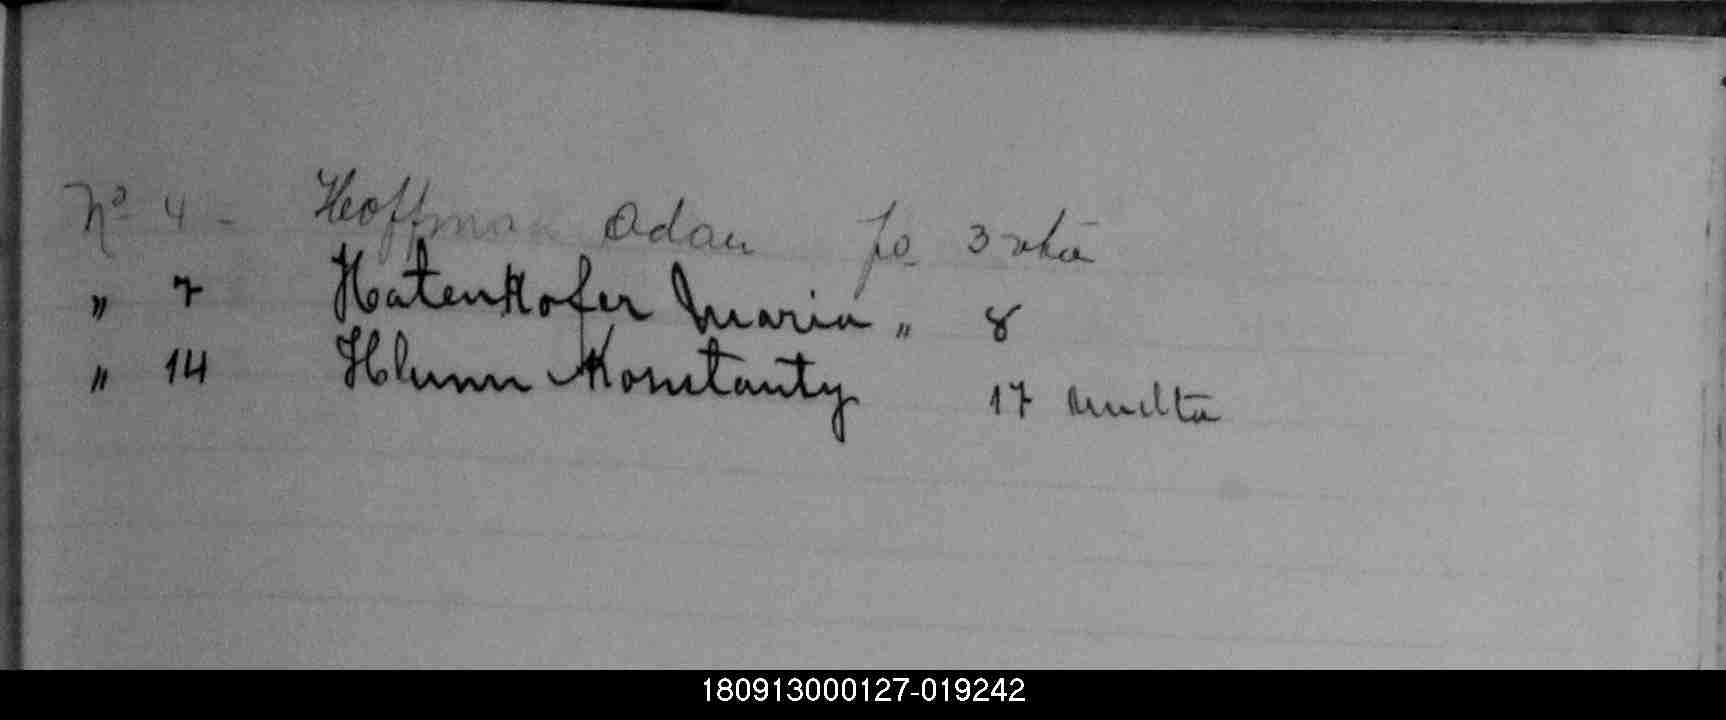 No 4 - Hoffman Adam po 3
" 7 Hatenhofer Maria " 8
" 14 Konstanty 17
180913000127-019242